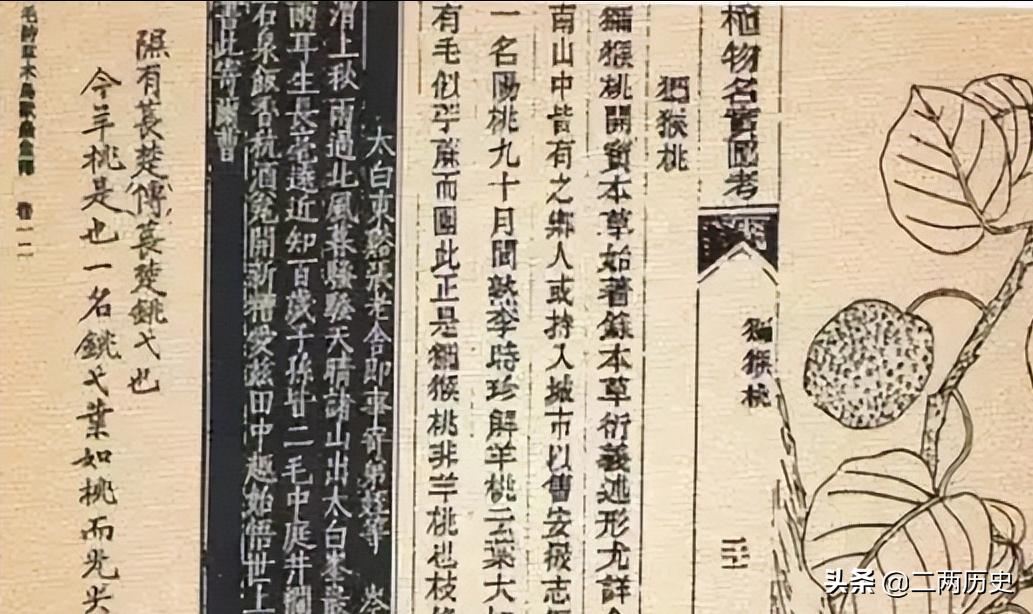 獼猴桃
三
植物名實圖考
獼猴桃
獼猴桃開寶本草始著錄本草衍義述形尤詳今
南山中皆有之鄉人或持入城市以售安徽志
一名陽桃九十月間熟李時珍解羊桃云葉大如
有毛似苧麻而團此正是獼猴桃非羊桃也枝條
太白東谿張老舍即事寄弟姪等 岑
渭上秋雨過北風暮騷騷天晴諸山出太白峯最
兩耳生長毫遠近知百歲子孫皆二毛中庭井闌
石泉飯香粳酒甕開新槽愛茲田中趣始悟世上
書此寄爾曹
隰有萇楚傳萇楚銚弋也
今羊桃是也一名銚弋葉如桃而光尖
毛詩草木鳥獸蟲魚 卷一二
头条 @二两历史